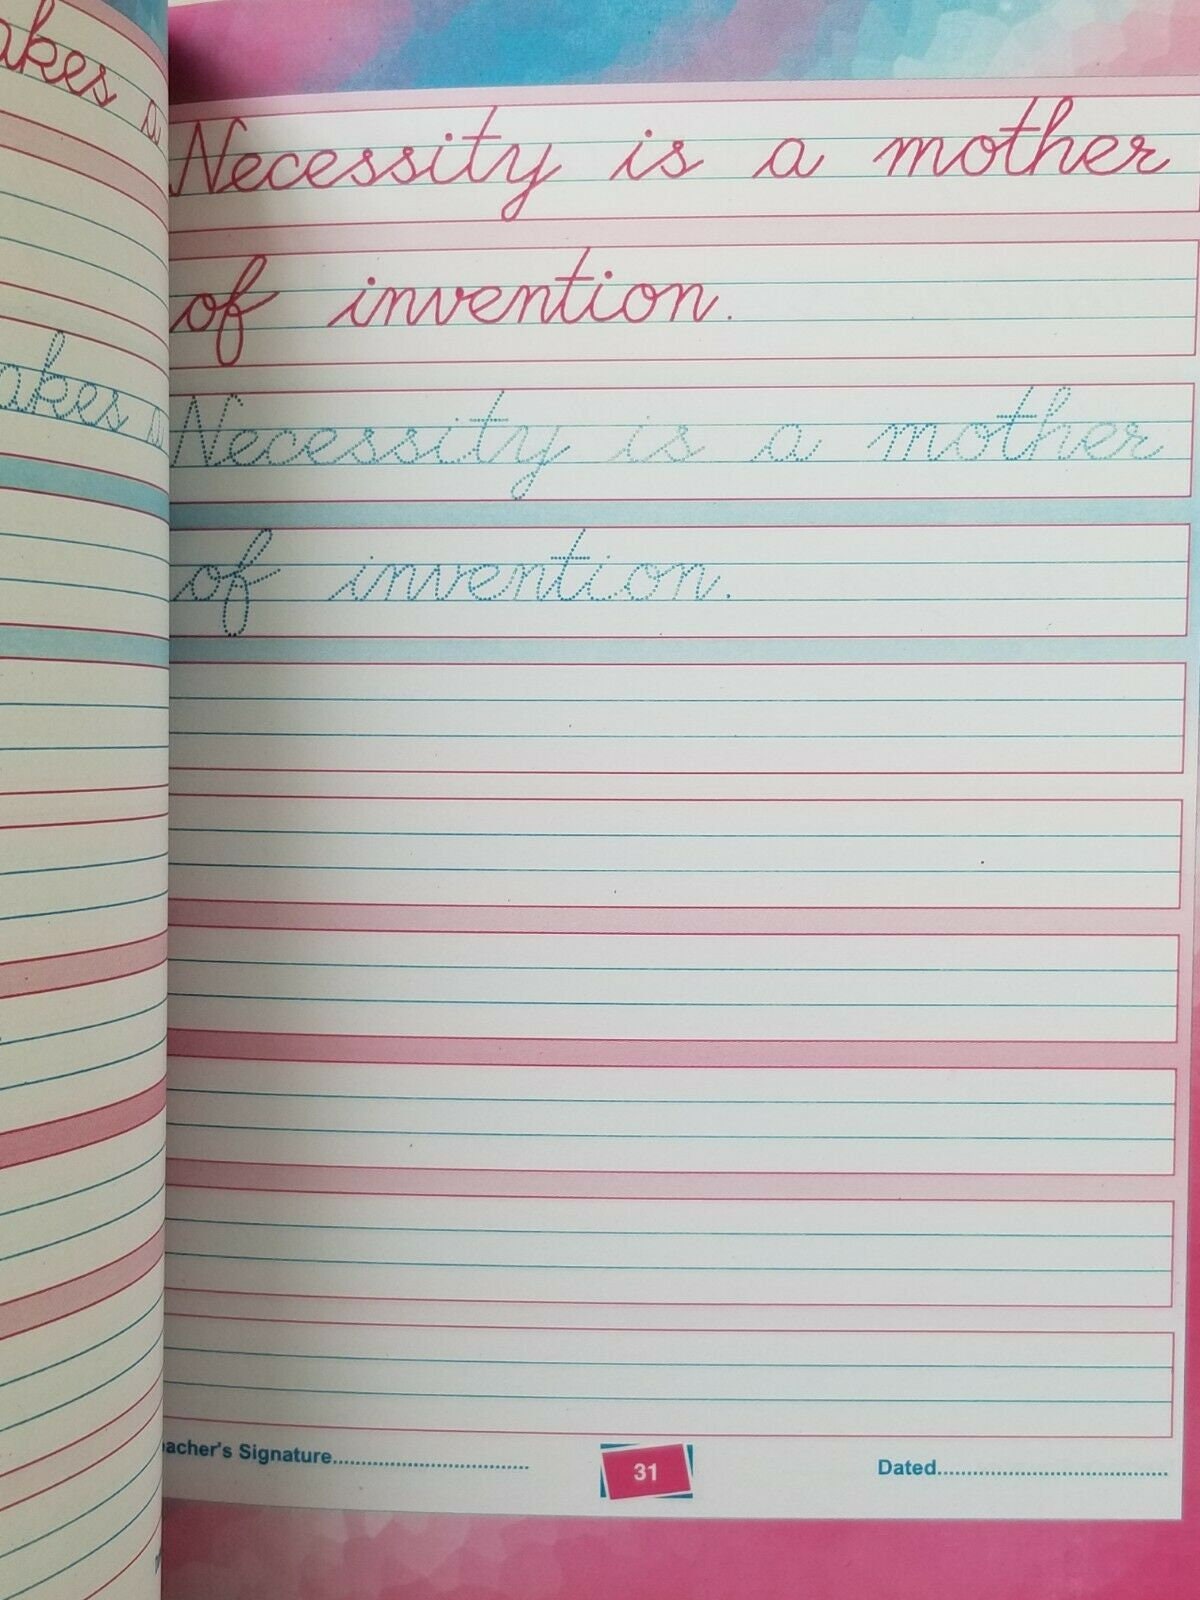 akes
Necessity is a mother
of invention.
akes
Necessity is a mother
of invention.
acher's Signature
31
Dated